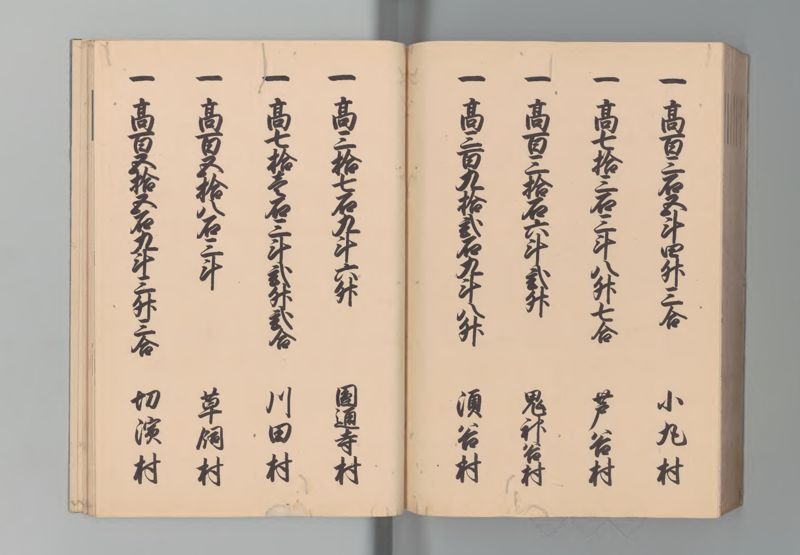 一 高百三石五斗四升三合 小丸村
一 高七拾三石三斗八升七合 芦谷村
一 高百三拾石六斗弐升 鬼神谷村
一 高三百九拾弐石九斗八升 須谷村
一 高三拾七石九斗六升 圓通寺村
一 高七拾壱石三斗弐升弐合 川田村
一 高百五拾八石三斗 草飼村
一 高百五拾五石九斗三升三合 切濱村